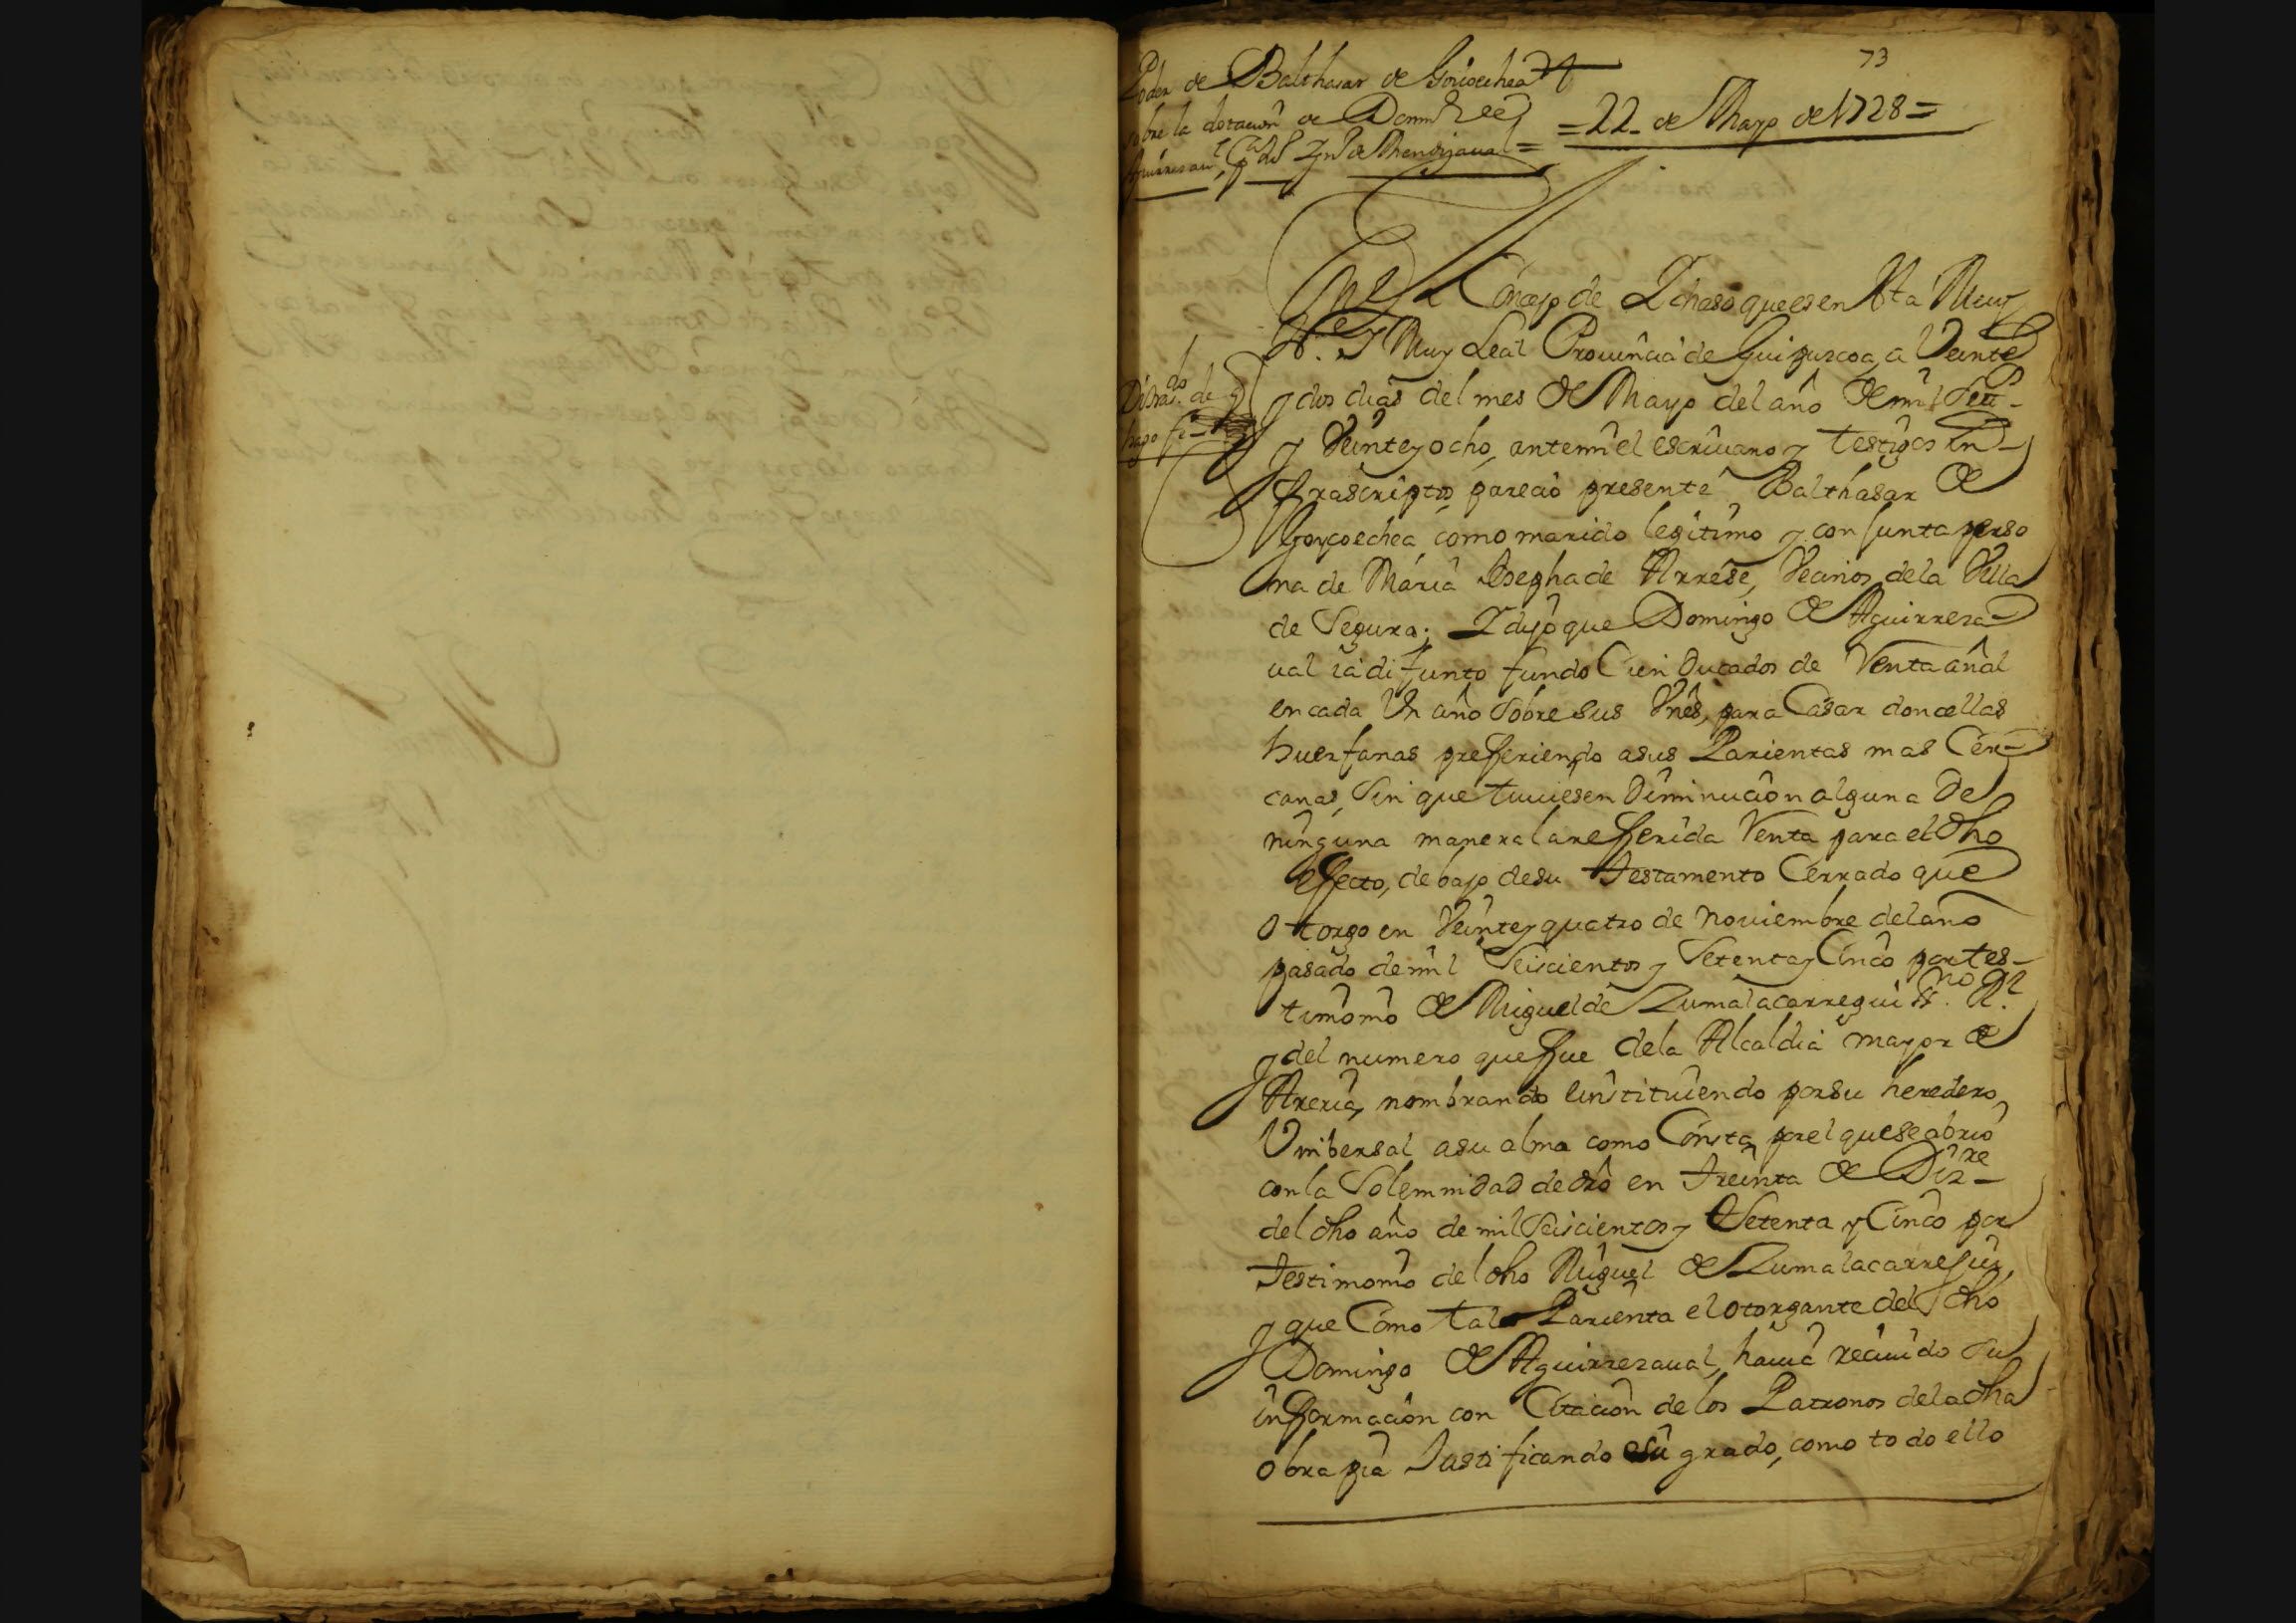 73
Poder de Balthasar de Goicoechea
sobre la dotacion de Domingo de
Aguirresaual
= 22 de Mayo de 1728 =
En el Concejo de Ichaso que es en Esta Muy
Ne. y Muy Leal Prouincia de Guipuzcoa, a Veinte
y dos dias del mes de Mayo del año de mil Setts.
y Veinte y ocho, antemi el escriuano y testigos in-
frascriptos, parecio presente Balthasar de
Goycoechea, como marido legitimo y conjunta perso
na de Maria Josepha de Arrese, Vecinos de la Villa
de Segura; I dijo que Domingo de Aguirreza-
ual ia difunto fundo Cien Ducados de Renta añal
en cada Un año Sobre sus Vnes, para Casar doncellas
huerfanas prefferiendo a sus Parientas mas Cer-
canas, Sin que tuuiesen diminucion alguna de
ninguna manera la refferida Renta para el dho
effecto, debajo de su testamento Cerrado que
otorgo en Veinte y quatro de Nouiembre del año
pasado de mil Seiscientos y Setenta y Cinco por tes-
timonio de Miguel de Zumalacarregui ssno. Rl.
y del numero que ffue de la Alcaldia mayor de
Areria, nombrando e instituiendo por su heredero
Unibersal a su alma como Consta por el que se abrio
con la Solemnidad de dro en treinta de Dizre
del dho año de mil Seiscientos y Setenta y Cinco por
testimonio del dho Miguel de Zumalacarregui,
y que Como tal Parienta el otorgante del dho
Domingo de Aguirrezaual, hauia reciuido su
informacion con Citacion de los Patronos de la dha
obra pia Justificando su grado, como todo ello
Di trasdo. de q
hago fe